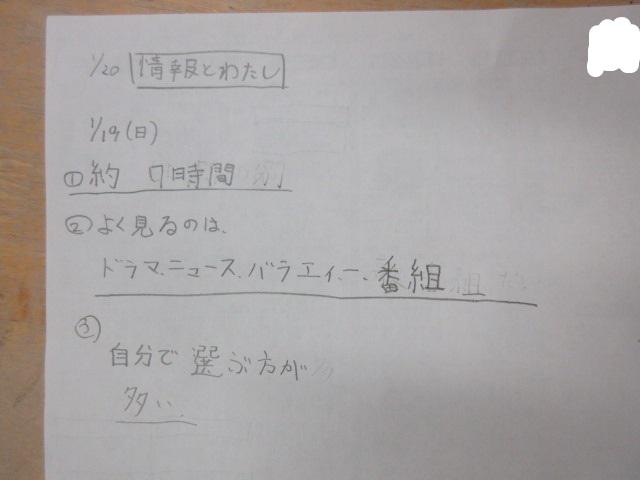 1/20 情報とわたし
1/19(日)
①約 7時間
②よく見るのは、
ドラマ、ニュース、バラエティー、番組
③
自分で選ぶ方が
多い.